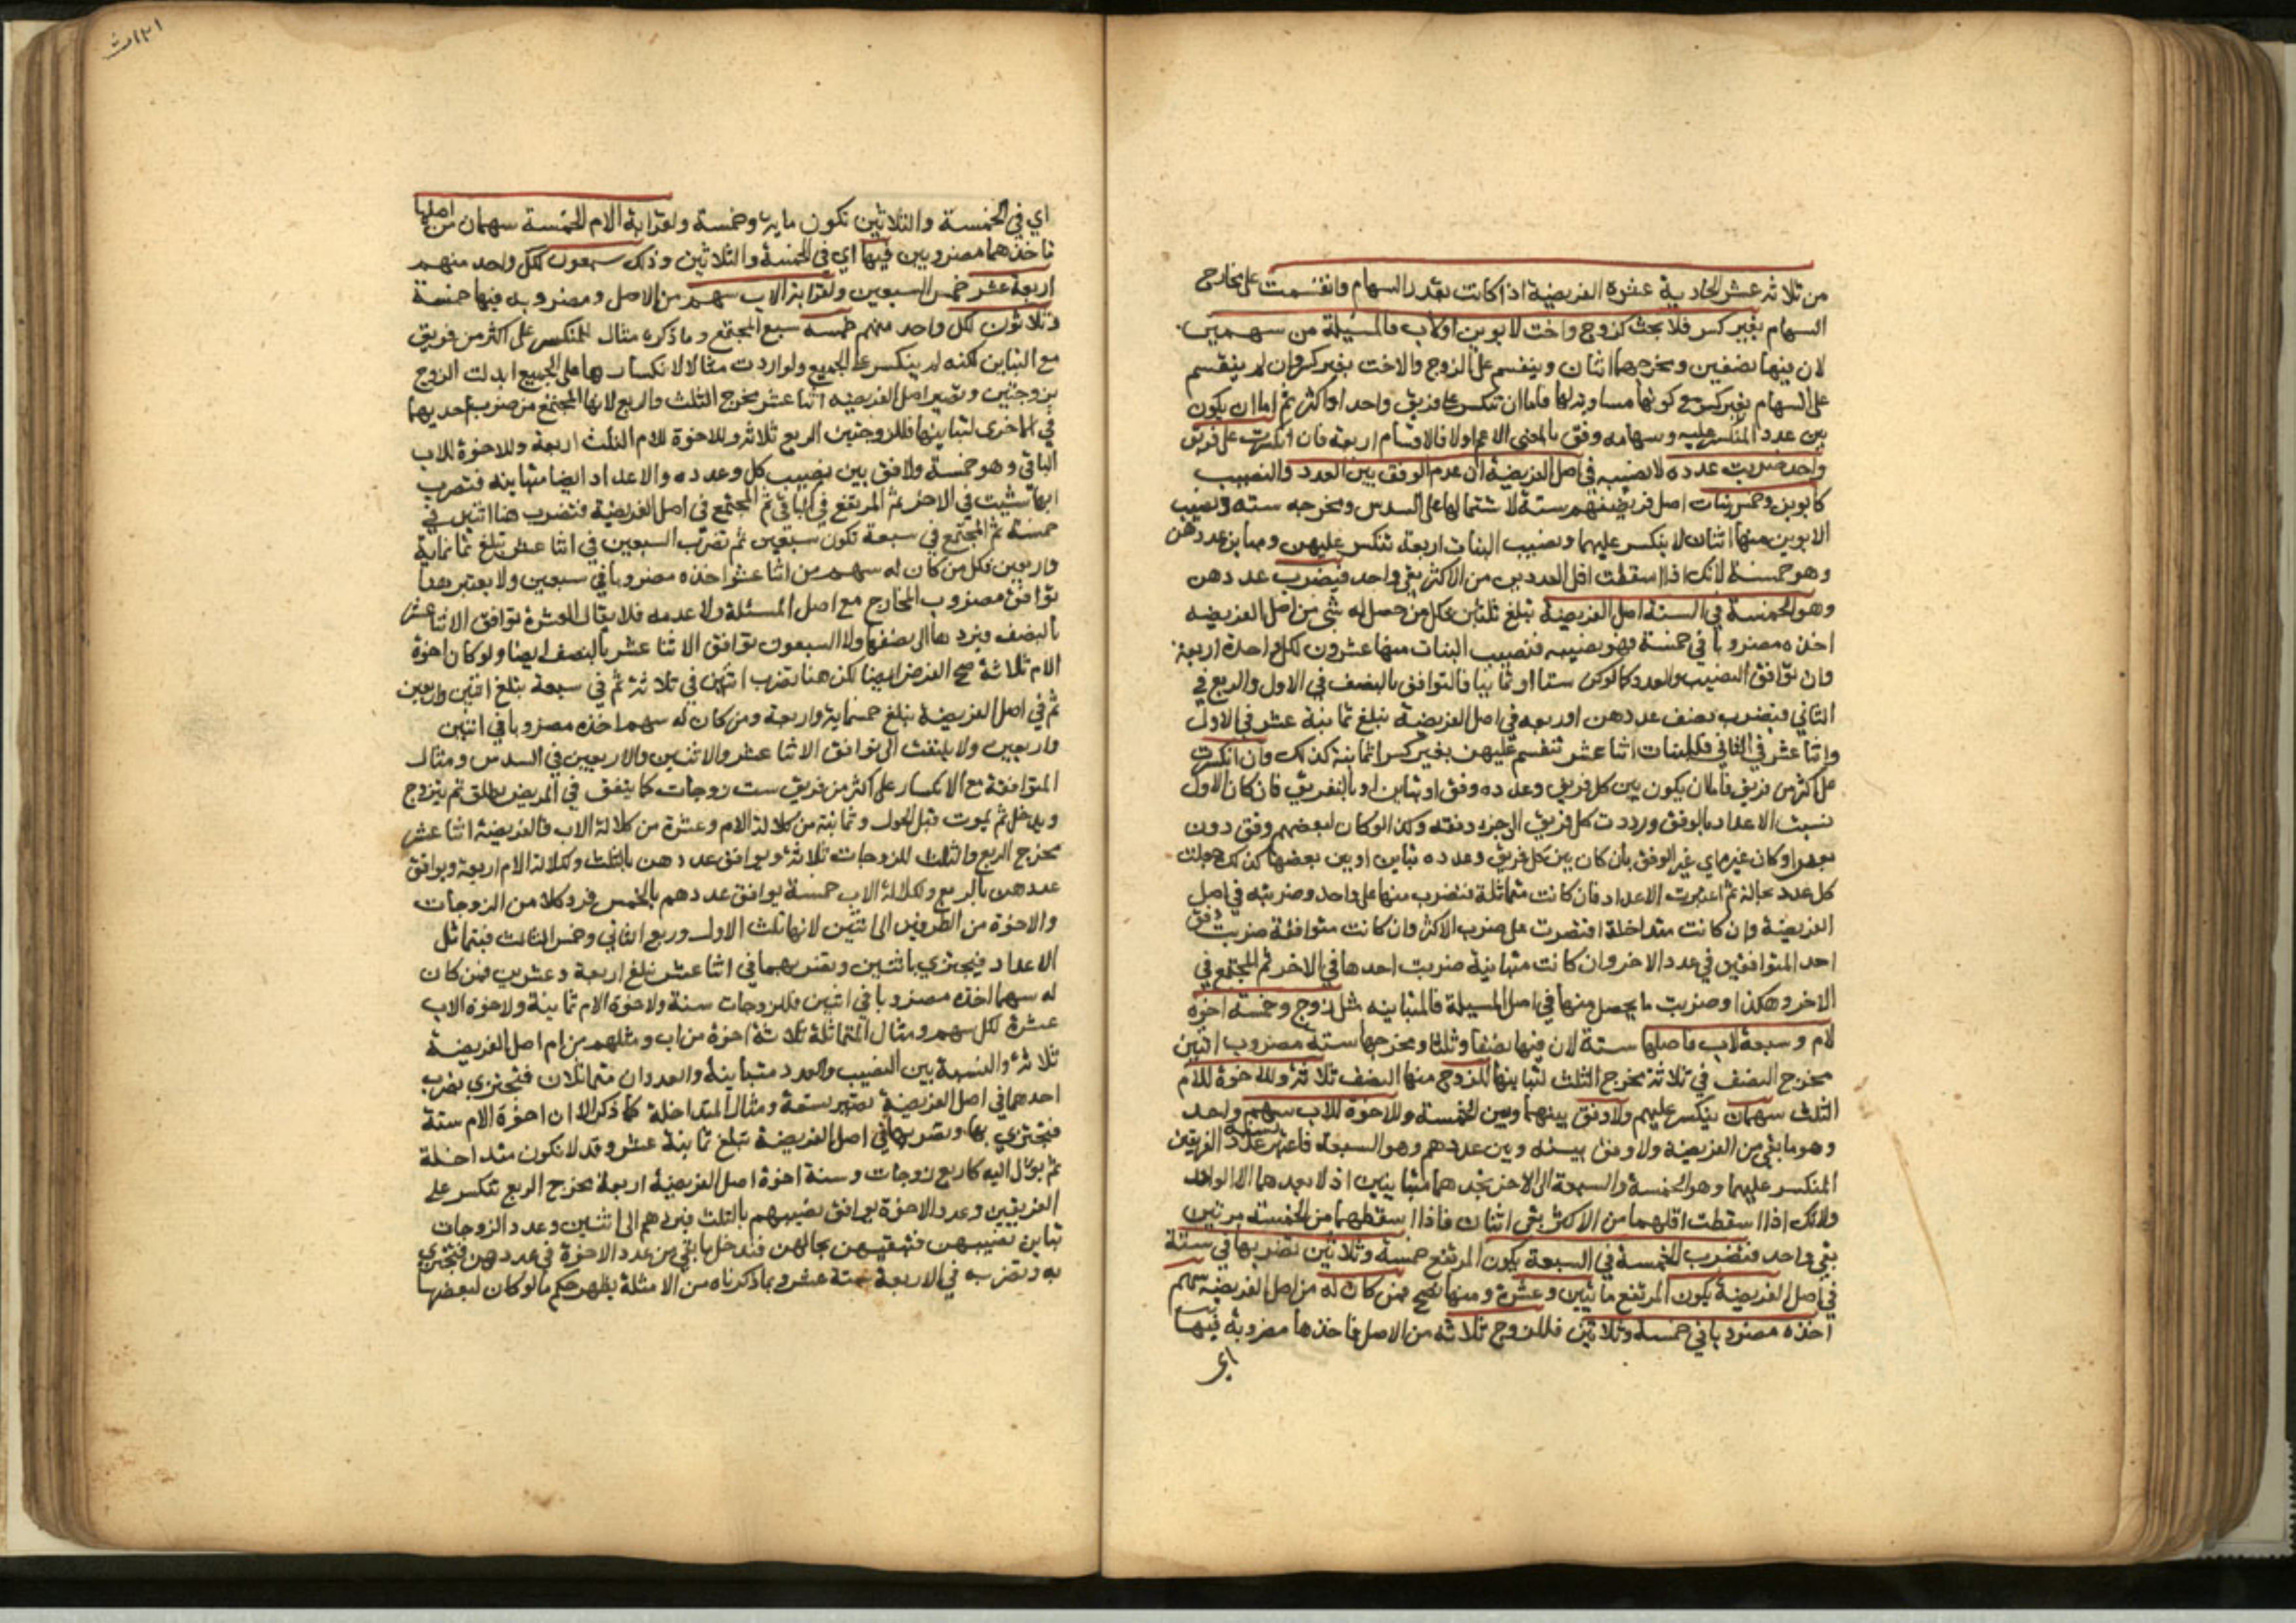 من ثلاثة عشر الحادية عشرة الفريضة اذا كانت بقدر السهام وانقسمت على مخارج
السهام بغير كسر فلا بحث كزوج واخت لابوين اولاب فالمسيلة من سهمين
لان فيها نصفين ومخرجهما اثنان وينقسم على الزوج والاخت بغير كسر وان لم ينقسم
على السهام بغير كسر مع كونها مساوية لها فاما ان تنكسر على فريق واحد او اكثر ثم اما ان يكون
بين عدد المنكسر عليه وسهامه وفق بالمعنى الاعم اولا فالاقسام اربعة فان انكسرت على فريق
واحد ضربت عدده لا نصيبه في اصل الفريضة ان عدم الوفق بين العدد والنصيب
كابوين وخمس بنات اصل فريضتهم ستة لاشتمالها على السدس ومخرجه ستة ونصيب
الابوين منها اثنان لا ينكسر عليهما ونصيب البنات اربعة تنكسر عليهن ومباين عددهن
وهو خمسة لانك اذا اسقطت اقل العددين من الاكثر بقي واحد فيضرب عددهن
وهو الخمسة في الستة اصل الفريضة تبلغ ثلثين فكل من حصل له شي من اصل الفريضه
اخذه مضروبا في خمسة فهو نصيبه فنصيب البنات منها عشرون لكل واحدة اربعة
وان توافق النصيب والعدد كما لو كن ستا او ثمانيا فالتوافق بالنصف في الاول والربع في
الثاني فيضرب نصف عددهن او ربعه في اصل الفريضة تبلغ ثمانية عشر في الاول
واثنا عشر في الثاني فللبنات اثنا عشر تنقسم عليهن بغير كسر او ثمانية كذلك وان انكسرت
على اكثر من فريق فاما ان يكون بين كل فريق وعدده وفق او تباين او بالتفريق فان كان الاول
نسبت الاعداد بالوفق ورددت كل فريق الى جزء وفقه وكذا لو كان لبعضهم وفق دون
بعض او كان غيره اي غير الوفق بان كان بين كل فريق وعدده تباين او بين بعضها كذلك جعلت
كل عدد بحاله ثم اعتبرت الاعداد فان كانت متماثلة فتضرب منها على واحد وضربته في اصل
الفريضة وان كانت متداخلة اقتصرت على ضرب الاكثر وان كانت متوافقة ضربت وفق
احد المتوافقين في عدد الاخر وان كانت متباينة ضربت احدها في الاخر ثم المجتمع في
الاخر وهكذا وضربت ما يحصل منها في اصل المسيلة فالمتباينه مثل زوج وخمسة اخوة
لام وسبعة لاب فاصلها ستة لان فيها نصفا وثلثا ومخرجها ستة مضروب اثنين
مخرج النصف في ثلاثة مخرج الثلث لتباينها للزوج منها النصف ثلاثة وللاخوة للام
الثلث سهمان ينكسر عليهم ولا وفق بينهما وبين الخمسة وللاخوة للاب سهم واحد
وهو ما بقي من الفريضة ولا وفق بينه وبين عددهم وهو السبعة فاعتبر نسبة عدد الفريقين
المنكسر عليهما وهو الخمسة والسبعة الى الاخر تجدهما متباينين اذ لا يعدهما الا الواحد
ولانك اذا اسقطت اقلهما من الاكثر بقي اثنان فاذا اسقطهما من الخمسة مرتين
بقي واحد فتضرب الخمسة في السبعة يكون المرتفع خمسة وثلاثين تضربها في ستة
في اصل الفريضة يكون المرتفع مائتين وعشرة ومنها تصح فمن كان له من اصل الفريضة سهم
اخذه مضروبا في خمسة وثلاثين فللزوج ثلاثة من الاصل فاخذها مضروبة فيها
اي
اي في الخمسة والثلاثين تكون ماية وخمسة ولقرابة الام الخمسة سهمان من اصلها
تاخذهما مضروبين فيها اي في الخمسة والثلاثين وذلك سبعون لكل واحد منهم
اربعة عشر خمس السبعين ولقرابة الاب سهم من الاصل ومضروبه فيها خمسة
وثلاثون لكل واحد منهم خمسة سبع المجتمع وما ذكره مثال المنكسر على اكثر من فريق
مع التباين لكنه لم ينكسر على الجميع ولو اردت مثالا لانكسارها على الجميع ابدلت الزوج
بزوجتين وتصير اصل الفريضه اثنا عشر مخرج الثلث والربع لانها المجتمع من ضرب احديهما
في الاخرى لتباينها فللزوجتين الربع ثلاثة وللاخوة للام الثلث اربعة وللاخوة للاب
الباقي وهو خمسة ولا وفق بين نصيب كل وعدده والاعداد ايضا متباينه فتضرب
ايها شيت في الاخر ثم المرتفع في الباقي ثم المجتمع في اصل الفريضة فتضرب هنا اثنين في
خمسة ثم المجتمع في سبعة تكون سبعين ثم تضرب السبعين في اثنا عشر تبلغ ثمانماية
واربعين فكل من كان له سهم من اثنا عشر اخذه مضروبا في سبعين ولا يعتبر هنا
توافق مضروب المخارج مع اصل المسئلة ولا عدمه فلا يقال العشرة توافق الاثنا عشر
بالنصف ويردها الى نصفها ولا السبعون توافق الاثنا عشر بالنصف ايضا ولو كان اخوة
الام ثلاثة صح الفرض ايضا لكن هنا تضرب اثنين في ثلاثة ثم في سبعة تبلغ اثنين واربعين
ثم في اصل الفريضة تبلغ خمسماية واربعة ومن كان له سهم اخذه مضروبا في اثنين
واربعين ولا يلتفت الى توافق الاثنا عشر والاثنين والاربعين في السدس ومثال
المتوافقة مع الانكسار على اكثر من فريق ست زوجات كما يتفق في المريض يطلق ثم يتزوج
ويدخل ثم يموت قبل الحول وثمانية من كلالة الام وعشرة من كلالة الاب فالفريضة اثنا عشر
مخرج الربع والثلث للزوجات ثلاثة ويوافق عددهن بالثلث ولكلالة الام اربعة ويوافق
عددهن بالربع ولكلالة الاب خمسة يوافق عددهم بالخمس فرد كلا من الزوجات
والاخوة من الطرفين الى اثنين لانها ثلث الاول وربع الثاني وخمس الثالث فيتماثل
الاعداد فيجتزي باثنين وتضربهما في اثنا عشر تبلغ اربعة وعشرين فمن كان
له سهما اخذه مضروبا في اثنين فللزوجات ستة ولاخوة الام ثمانية ولاخوة الاب
عشرة لكل سهم ومثال المتماثلة ثلاثة اخوة من اب ومثلهم من ام اصل الفريضة
ثلاثة والنسبة بين النصيب والعدد متباينة والعددان متماثلان فتجتزي بضرب
احدهما في اصل الفريضة تصير تسعة ومثال المتداخلة كما ذكر الا ان اخوة الام ستة
فتجتزي بها وتضربها في اصل الفريضة تبلغ ثمانية عشر وقد لا تكون متداخلة
ثم يؤل اليه كاربع زوجات وستة اخوة اصل الفريضة اربعة مخرج الربع تنكسر على
الفريقين وعدد الاخوة يوافق نصيبهم بالثلث فيردهم الى اثنين وعدد الزوجات
تباين نصيبهن فتبقيهن بحالهن فتدخل ما بقي من عدد الاخوة في عددهن فتجتزي
به وتضربه في الاربعة ستة عشر وبما ذكرناه من الامثلة يظهر حكم ما لو كان لبعضها